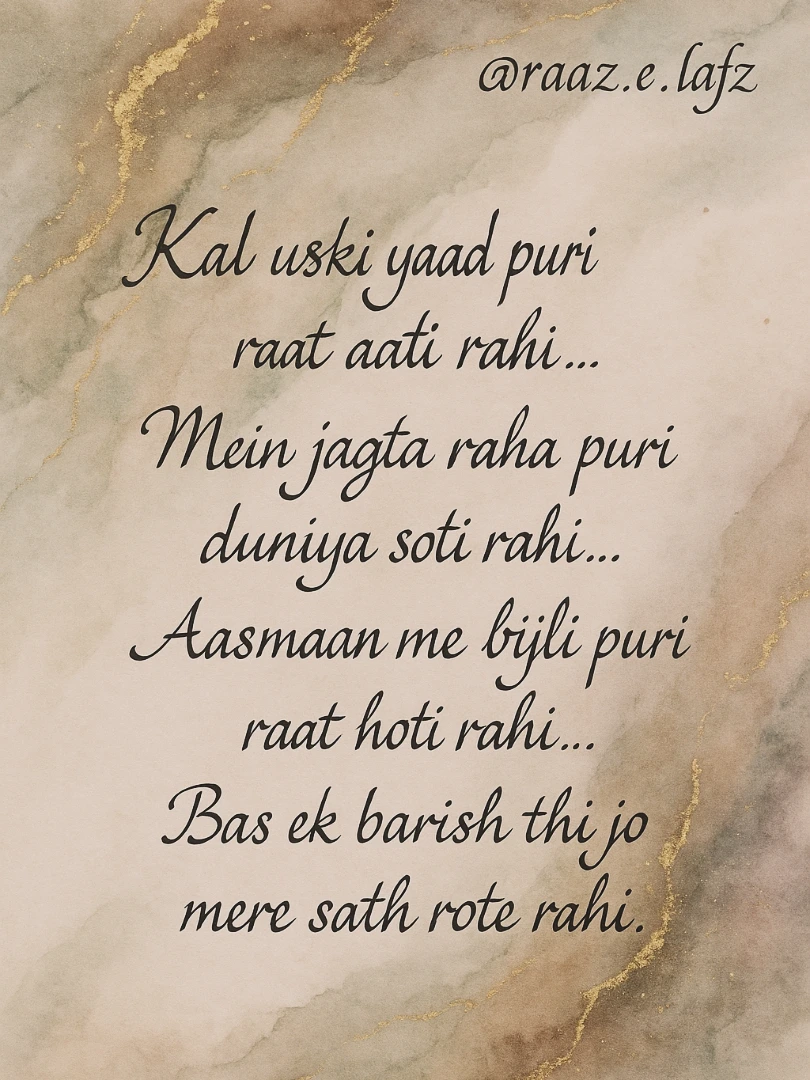 @raaz.e.lafz
Kal uski yaad puri
raat aati rahi...
Mein jagta raha puri
duniya soti rahi...
Aasmaan me bijli puri
raat hoti rahi...
Bas ek barish thi jo
mere sath rote rahi.